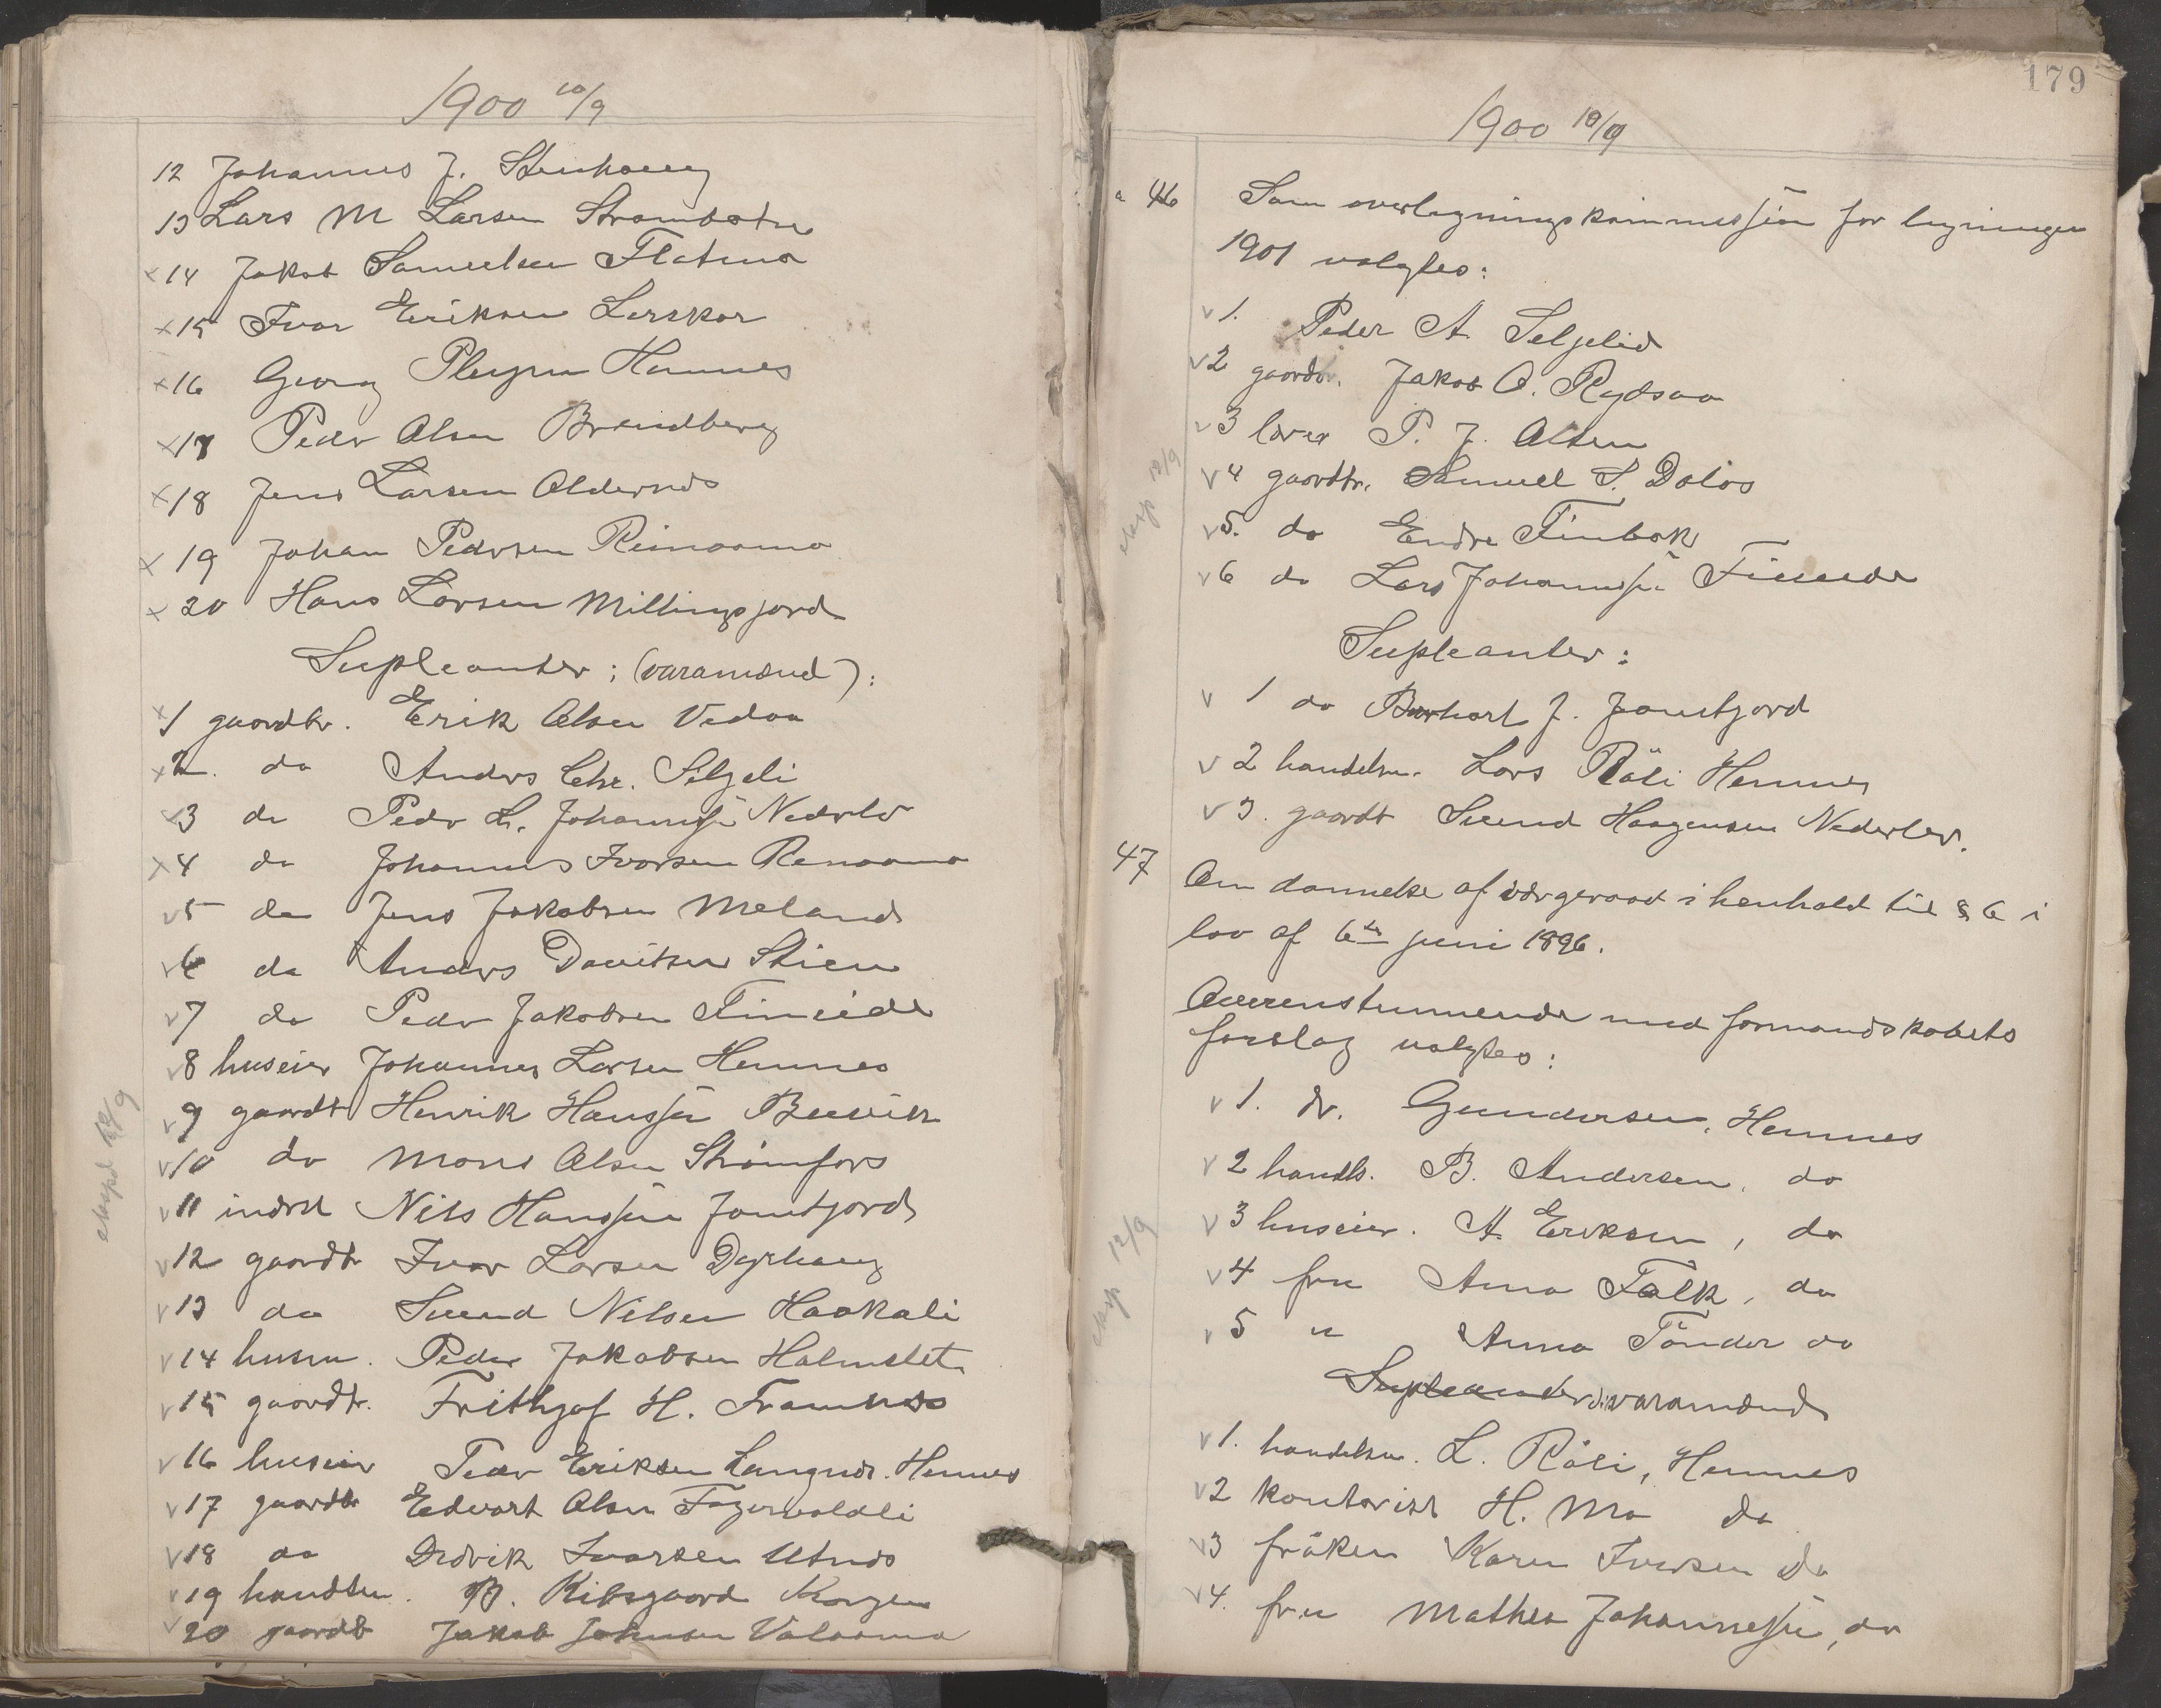 1900 10/9
12 Johannes J. Stenhaug
13 Lars M Larsen Strambotn
x 14 Jakob Samuelsen Flatmo
x 15 Ivar Eriksen Lerskar
x 16 Georg Pleym Hemnes
x 17 Peder Olsen Brendberg
x 18 Jens Larsen Oldernes
x 19 Johan Pedersen Reinaamo
x 20 Hans Larsen Millingsjord
Supleanter; (varamænd):
x 1 gaardbr. Erik Olsen Vedaa
x 2. do Anders Chr. Seljeli
v 3 do Peder L. Johannessen Nederle
x 4 do Johannes Ivarsen Renaamo
v 5 do Jens Jakobsen Meland
v 6 do Anders Davitsen Stien
v 7 do Peder Jakobsen Fineide
v 8 huseier Johannes Larsen Hemnes
v 9 gaardb Henrik Hanssen Breivik
v 10 do Mons Olsen Strømfors
v 11 indrst Nils Hanssen Jamtjord
v 12 gaardb Ivar Larsen Dyrhaug
v 13 do Svend Nilsen Haakali
v 14 husm. Peder Jakobsen Halmslet
v 15 gaardbr. Frithjof H. Framnes
v 16 huseier Peder Eriksen Langnes. Hemnes
v 17 gaardbr Edvart Olsen Fagervoldli
v 18 do Didrik Ivarsen Utnes
v 19 handlsm. B. Kibsgaard Korgen
v 20 gaardb Jakob Johnsen Valaamo
eksped 12/9
179
1900 10/9
46 Som overlegningskommission for ligningen
1901 valgtes:
v 1. Peder A. Seljelid
v 2 gaardbr. Jakob O. Rydsaa
v 3 lærer P. J. Olsen
v 4 gaardbr. Samuel S. Dalos
v 5. do Endre Finbak
v 6 do Lars Johannessen Fineide
eksp 12/9
Supleanter:
v 1 do Burhart J. Jamtjord
v 2 handelsm. Lars Røli Hemnes
v 3. gaardb Svend Haagensen Nederler.
47 Om dannelse af værgeraad i henhold til § 6 i
lov af 6te juni 1896.
Overensstemmende med formandskabets
forslag valgtes:
v 1. dr. Gundersen, Hemnes
v 2 handls. B. Andersen, do
v 3 huseier. A. Eriksen, do
v 4 fru Anna Falk, do
v 5 " Anna Tønder do
eksp 12/9
Supleanter varamænd
v 1. handelsm. L. Røli, Hemnes
v 2 kontorist H. Mo do
v 3 frøken Karen Iversen do
v 4. fru Mathea Johannessen, do